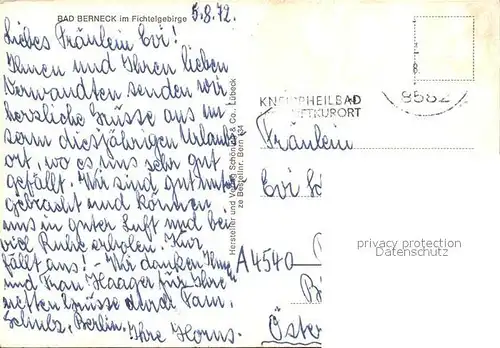 BAD BERNECK im Fichtelgebirge
5.8.72.
Liebes Fräulein Evi!
Ihnen und Ihren lieben
Verwandten senden wir
herzliche Grüsse aus un
serm diesjährigen Urlaubs
ort, wo es uns sehr gut
gefällt. Wir sind gut unter
gebracht und können
uns in guter Luft und bei
viel Ruhe erholen. Kur
fällt aus! - Wir danken Ihnen
und Frau Haager für Ihre
netten Grüsse durch Fam.
Schulz, Berlin. Ihre Horns.
Hersteller und Verlag Schöning & Co., Lübeck
Bestellnr. Bern 134
KNEIPPHEILBAD
LUFTKURORT
8582
Fräulein
Evi
A4540
Öster
privacy protection
Datenschutz